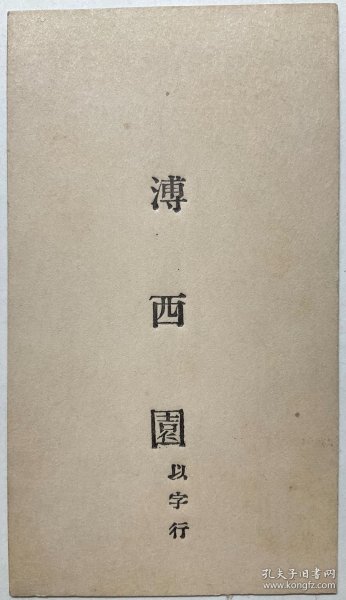 溥西園
以字行
孔夫子旧书网
www.kongfz.com